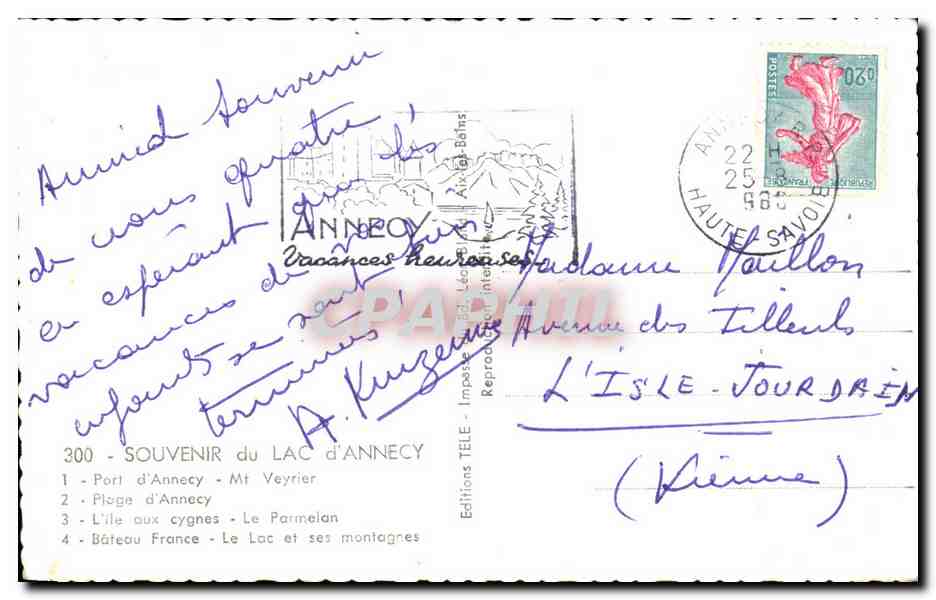 Amical souvenir
de nous quatre
en espérant que les
vacances de vos
enfants se sont bien
terminées
300 - SOUVENIR du LAC d'ANNECY
1 - Port d'Annecy - Mt Veyrier
2 - Plage d'Annecy
3 - L'ile aux cygnes - Le Parmelan
4 - Bâteau France - Le Lac et ses montagnes
Editions TELE - Impasse du Bd. Léon Blanc - Aix-les-Bains
Reproduction interdite
ANNECY
Vacances heureuses
CPAPHIL
0,20
POSTES
REPUBLIQUE FRANÇAISE
22 H
25 - 8
HAUTE-SAVOIE
Madame Maillon
Avenue des Tilleuls
L'ISLE-JOURDAIN
(Vienne)